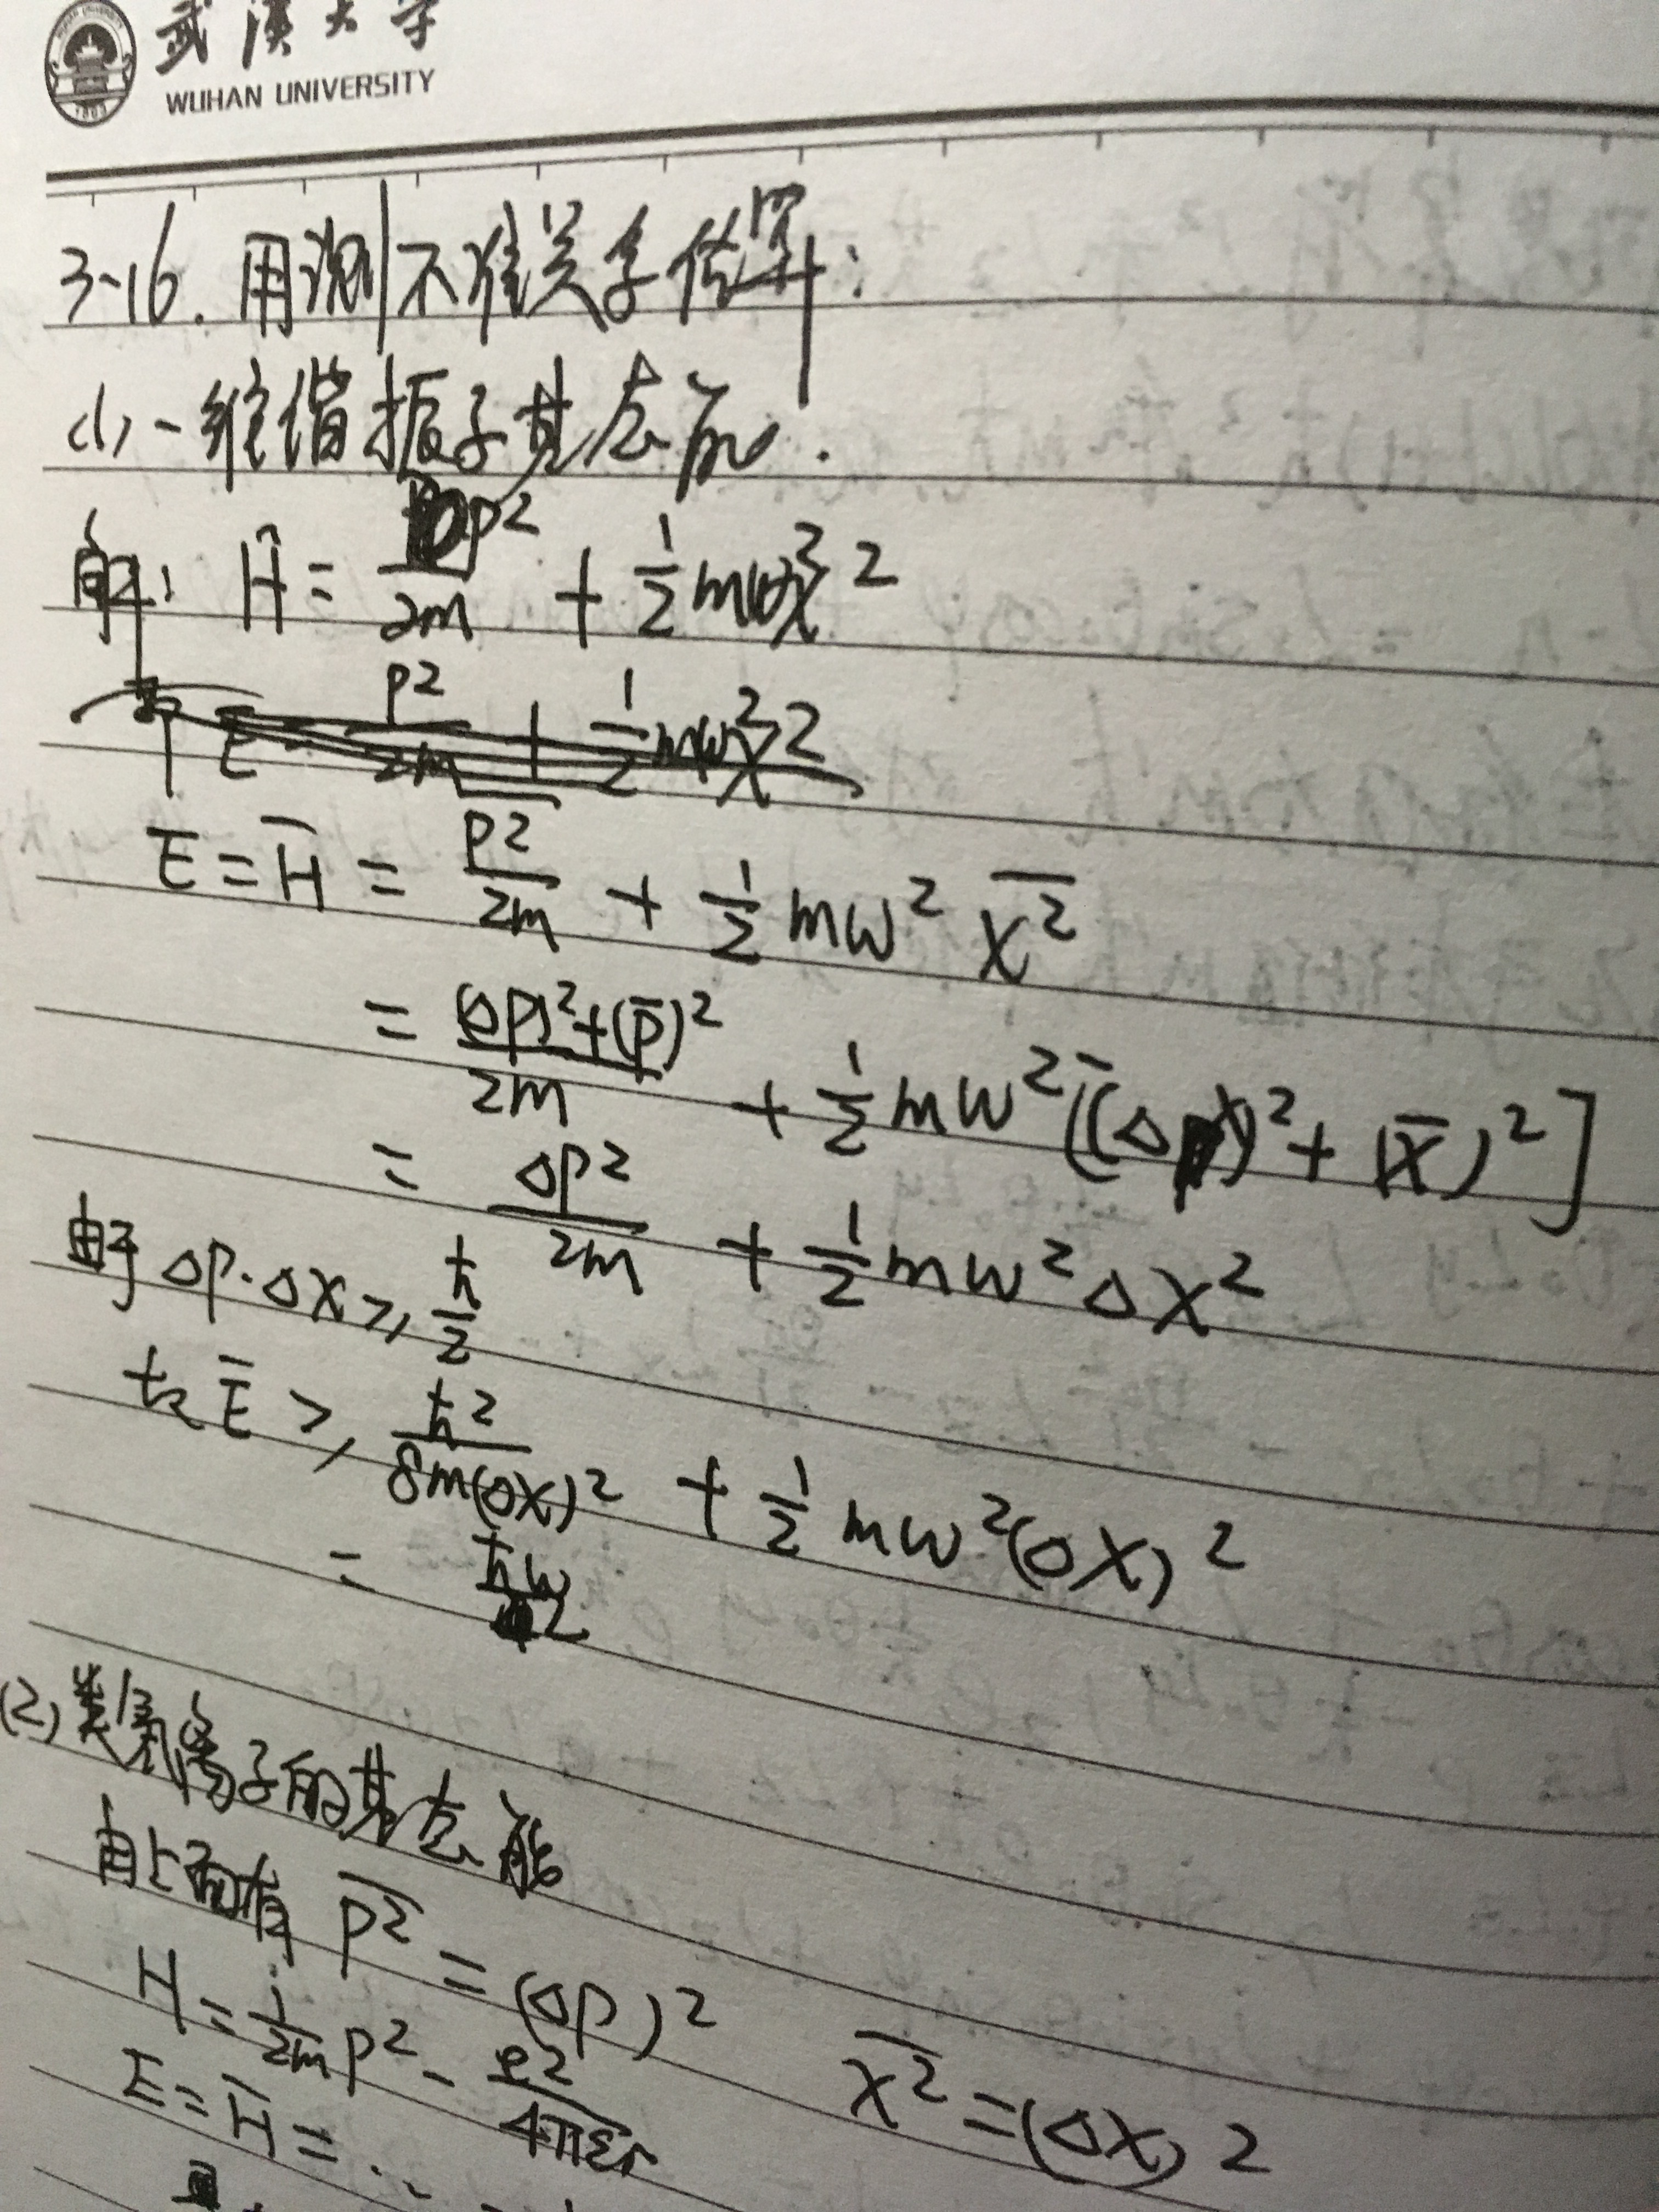 武汉大学
WUHAN UNIVERSITY
3-16. 用测不准关系估算:
(1) 一维谐振子基态能.
解: Ĥ = p²/2m + ½mω²x²
E = p²/2m + ½mω²x²
E = H̅ = p²̅/2m + ½mω² x²̅
= [(Δp)² + (p̅)²]/2m + ½mω²[(Δx)² + (x̅)²]
= Δp²/2m + ½mω²Δx²
由于 Δp·Δx ≥ ħ/2
故 E̅ ≥ ħ²/8m(Δx)² + ½mω²(Δx)²
= ħω/2
(2) 类氢离子的基态能
由上面有 p²̅ = (Δp)² x²̅ = (Δx)²
H = 1/2m p² - e²/4πεr
E = H̅ = ...